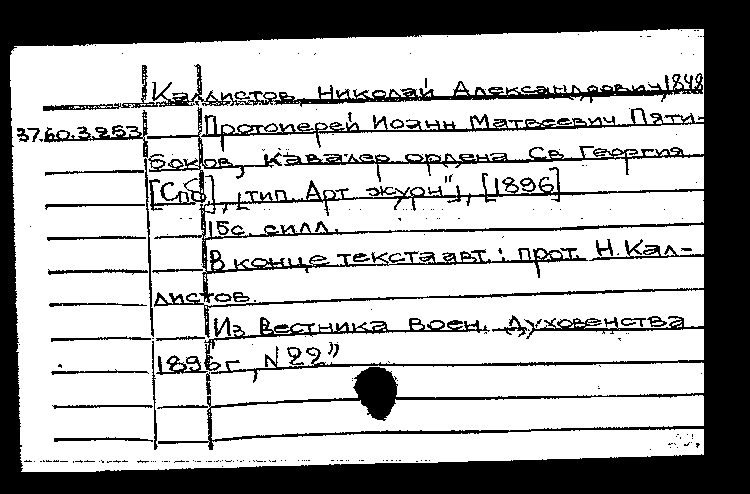 Каллистов, Николай Александрович, 1848
37.60.3.253 Протоиерей Иоанн Матвеевич Пяти-
боков, кавалер ордена Св Георгия
[Спб], "тип. Арт журн", [1896]
15с. силл.
В конце текста авт.: прот. Н. Кал-
листов.
"Из Вестника воен. духовенства
1896 г, N 22"